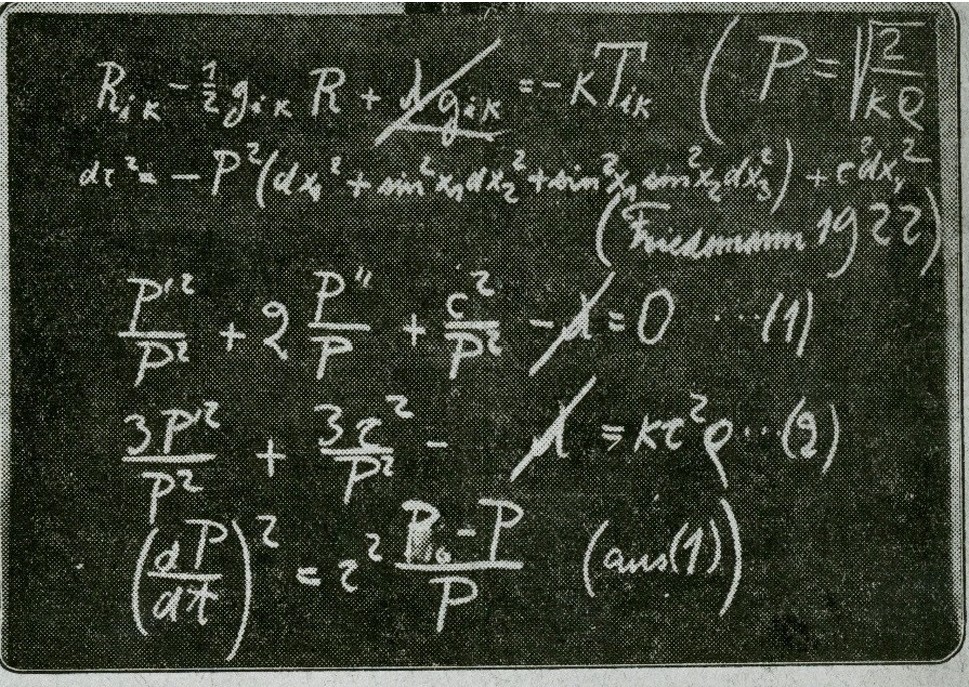 R_{ik} - 1/2 g_{ik} R + λ g_{ik} = -κ T_{ik} ( P = √(2/(κρ))
dτ² = -P²(dx₁² + sin²x₁dx₂² + sin²x₁ sin²x₂dx₃²) + c²dx₄²
(Friedmann 1922)
P'²/P² + 2 P''/P + c²/P² - λ = 0 ...(1)
3P'²/P² + 3c²/P² - λ = κc²ρ...(2)
(dP/dt)² = c² (P₀ - P)/P (aus(1))